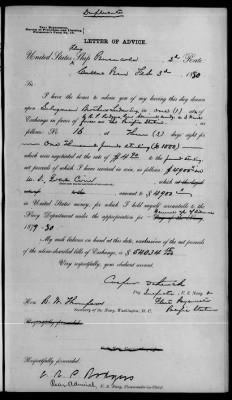 Duplicate
LETTER OF ADVICE.
Flag
United States Ship Pensacola 3d Rate
Callao Peru Feb 3d 1880
Sir:
I have the honor to advise you of having this day drawn
upon Seligman Brothers London, in one (1) set of
Exchange in favor of
follows: No 16 at Three (3) days sight for
One Thousand pounds sterling (£ 1000)
which were negotiated at the rate of $4.90 to the pound sterling
net proceeds of which I have received in coin, as follows: $4900
U.S. Gold Coin, which at
amount to $4900
in United States money, for which I hold myself accountable to the
Navy Department under the appropriation for
1879-80
My cash balance on hand at this date, exclusive of the net proceeds
of the above-described bills of Exchange, is $
Very respectfully, your obedient servant,
Pay Inspector, U. S. Navy &
Fleet Paymaster
Pacific Station
Hon. R. W. Thompson
Secretary of the Navy, Washington, D. C.
Respectfully forwarded.
Respectfully forwarded.
C. R. P. Rodgers
Rear Admiral, U. S. Navy, Commander-in-Chief